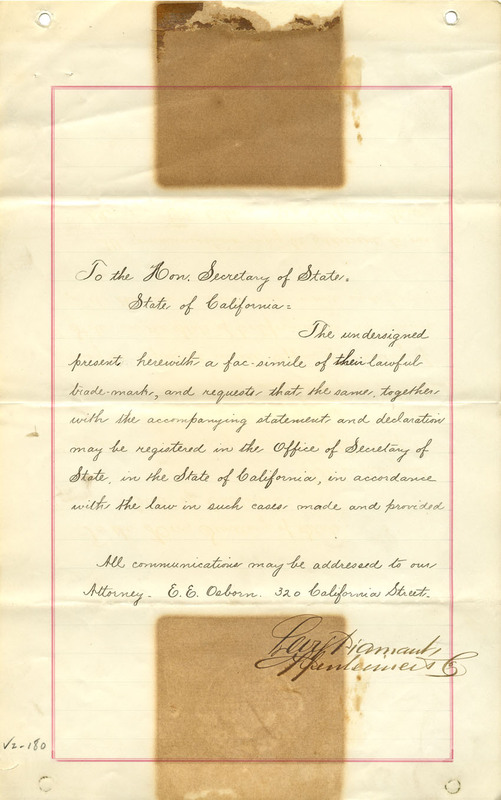 To the Hon. Secretary of State.
State of California =
The undersigned
present herewith a fac-simile of their lawful
trade-mark, and requests that the same, together
with the accompanying statement and declaration
may be registered in the Office of Secretary of
State, in the State of California, in accordance
with the law in such cases made and provided
All communications may be addressed to our
Attorney - E. E. Osborn. 320 California Street.
Diamant,
Co
V2-180